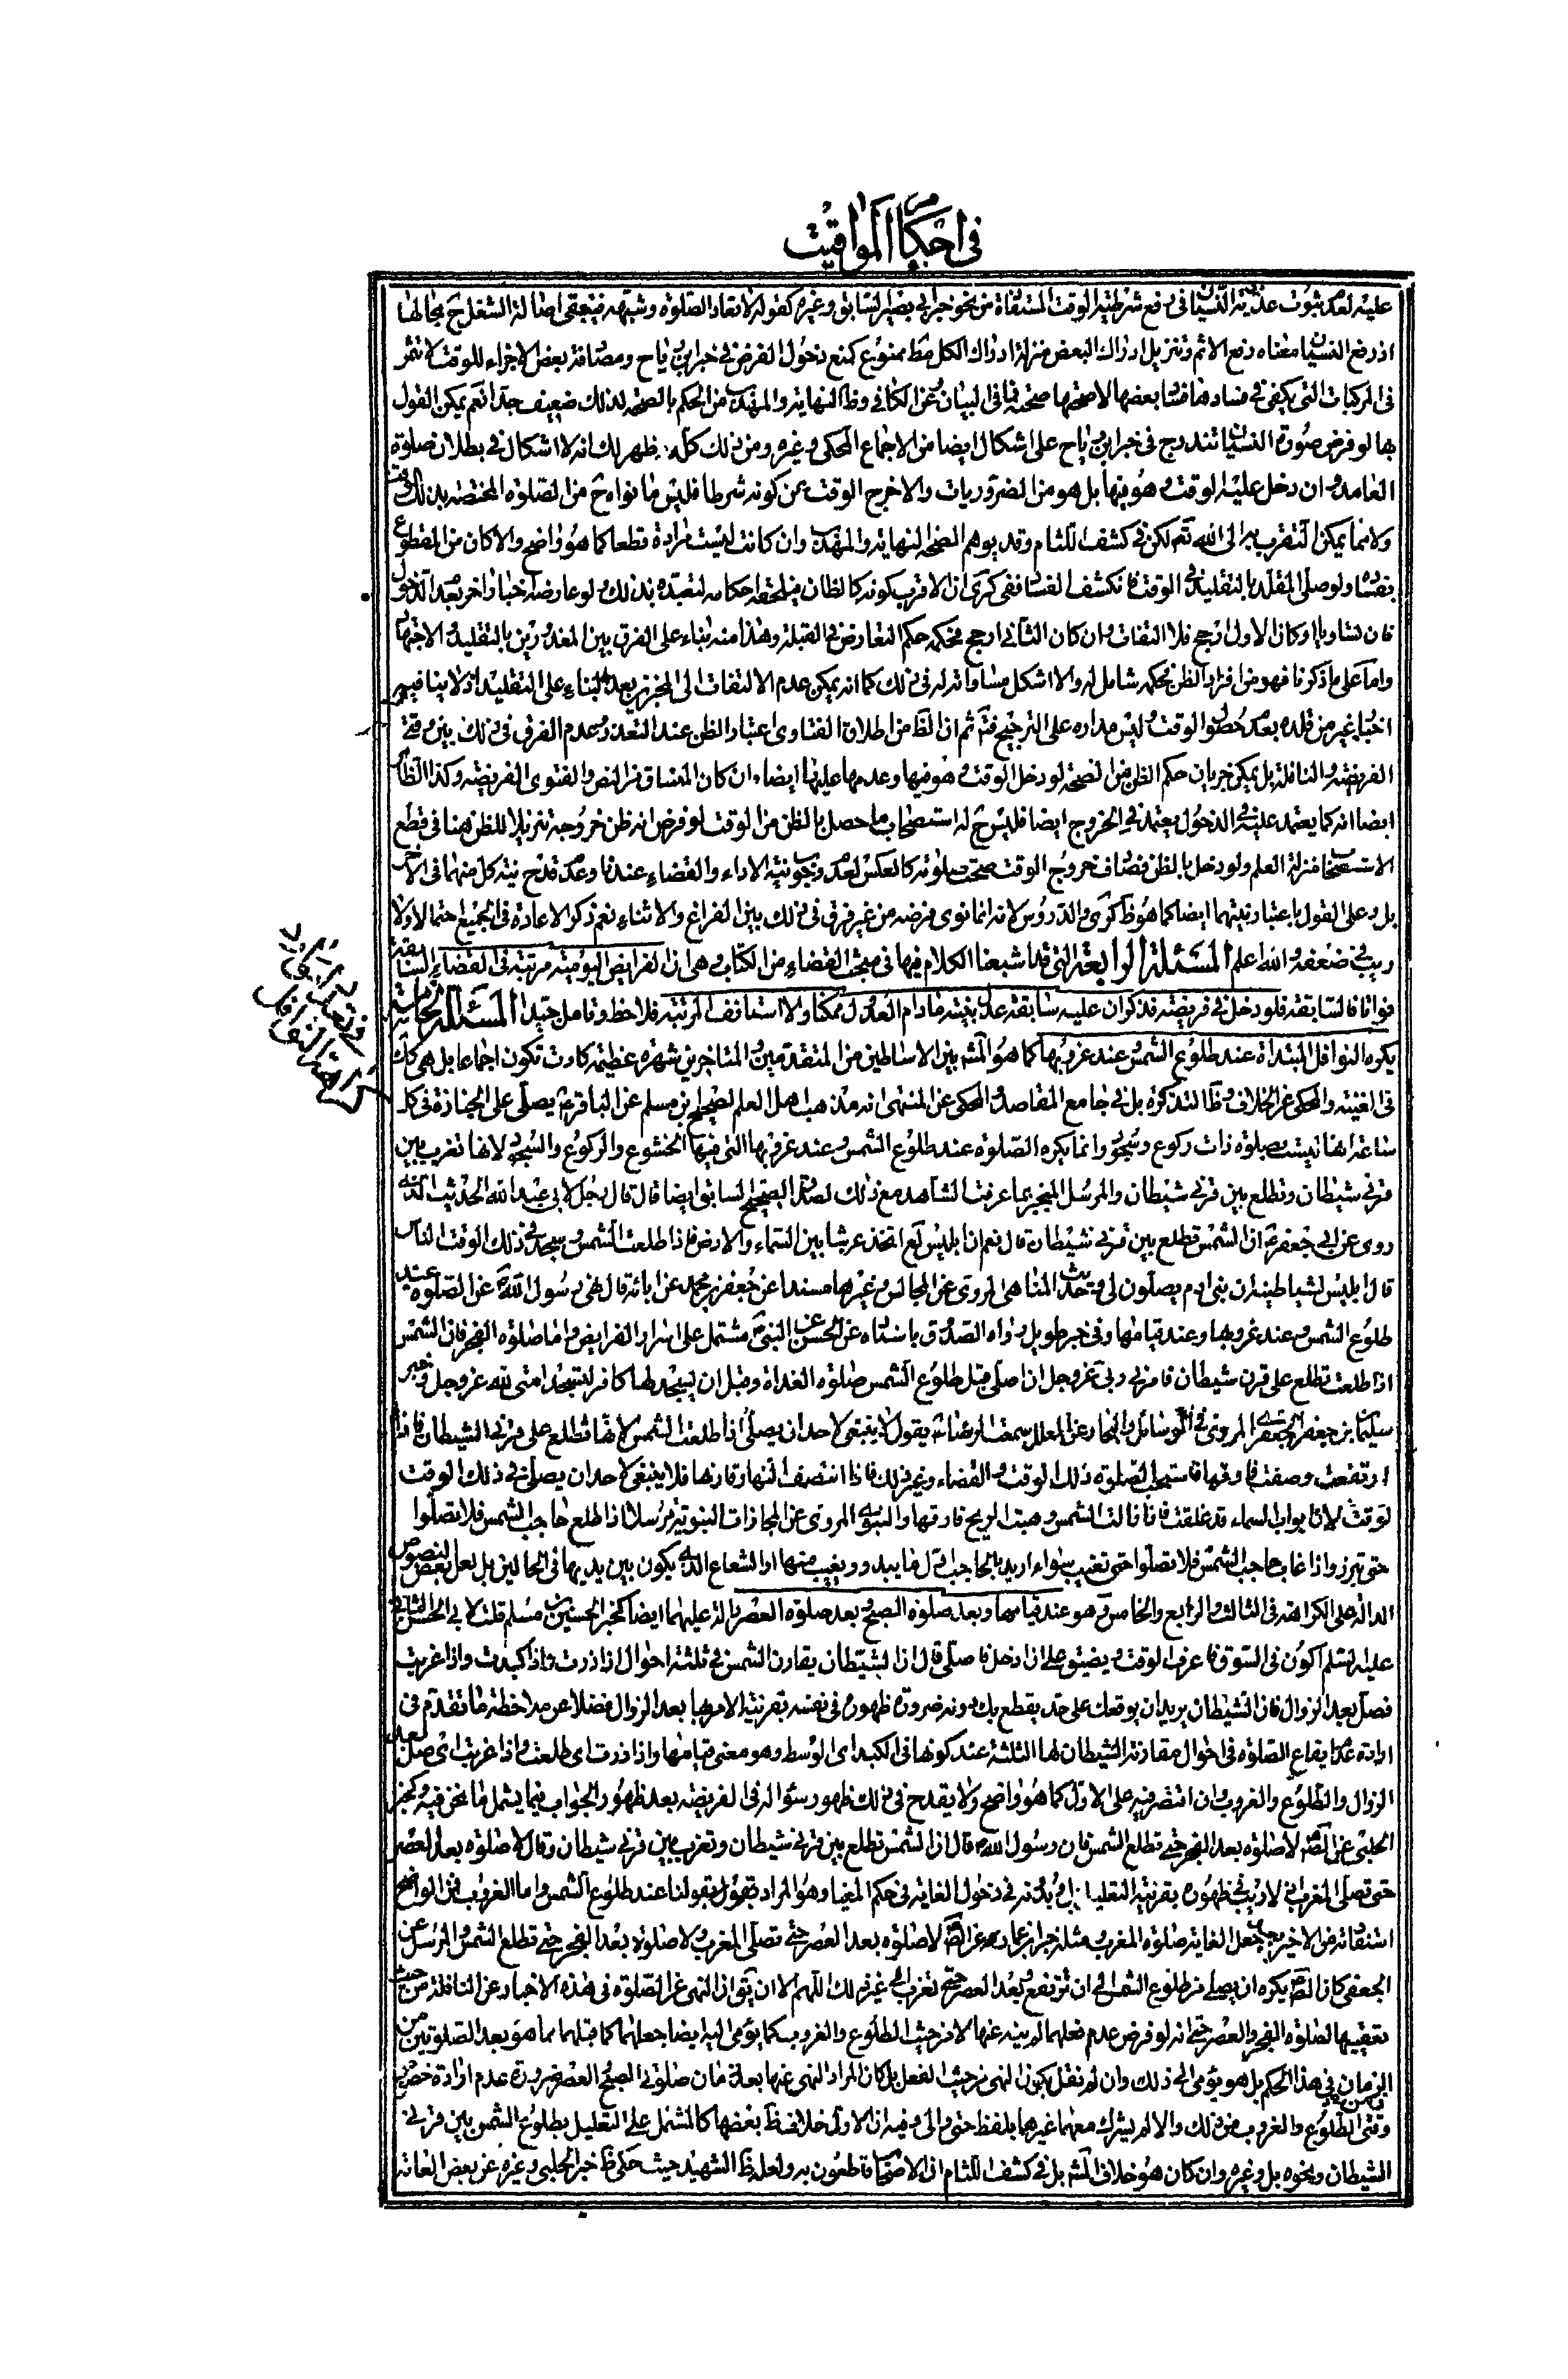 في احكام المواقيت
عليه لعدم ثبوت عذرية النسيان في رفع شرطية الوقت المستفادة من نحو خبر ابي بصير السابق وغيره كقوله لا تعاد الصلوة وشبهه فيبقى اصالة الشغل ح بحالها
اذ رفع النسيان معناه رفع الاثم وتنزيل ادراك البعض منزلة ادراك الكل مط ممنوع كمنع دخول الفرض في خبر ابن رياح ومصادفة بعض الاجزاء للوقت لا تثمر
في المركبات التي يكفي في فسادها فساد بعضها لا صحتها صحته فما في البيان وعن الكافي وظ النهاية والمهذب من الحكم بالصحة لذلك ضعيف جدا نعم يمكن القول
بها لو فرض صورة النسيان تندرج في خبر ابن رياح على اشكال ايضا من الاجماع المحكي وغيره ومن ذلك كله ظهر لك انه لا اشكال في بطلان صلوة
العامد وان دخل عليه الوقت وهو فيها بل هو من الضروريات والا خرج الوقت عن كونه شرطا فليس ما نواه ح من الصلوة المختصة بذلك الوقت
ولا مما يمكن التقرب به الى الله تع لكن في كشف اللثام وقد يوهم الصحة النهاية والمهذب وان كانت ليست مرادة قطعا كما هو واضح والا كان من المقطوع
بفساده ولو صلى المقلد بالتقليد في الوقت فانكشف الفساد ففي كرى ان الاقرب كونه كالظان فيلحقه احكامه لتعبده بذلك ولو عارضه اخبار اخر بعد الدخول
فان تساويا او كان الاول ارجح فلا التفات وان كان الثاني ارجح فحكمه حكم التعارض في القبلة وهذا منه بناء على الفرق بين المعذورين بالتقليد والاجتهاد
واما على ما ذكرنا فهو من افراد الظن فحكمه شامل له والا اشكل مساواته له في ذلك كما انه يمكن عدم الالتفات الى المخبرين بعد البناء على التقليد اذ لا ينافيه
اخبار غير من قلده بعدم حصول الوقت وليس مداره على الترجيح فتم ثم ان الظ من اطلاق الفتاوى اعتبار الظن عند التعذر وعدم الفرق في ذلك بين وقتي
الفريضة والنافلة بل يمكن جريان حكم الظن من الصحة لو دخل الوقت وهو فيها وعدمها عليها ايضا وان كان المنساق من النص والفتوى الفريضة وكذا الظاهر
ايضا انه كما يعتمد عليه في الدخول يعتمد في الخروج ايضا فليس ح له استصحاب ما حصل بالظن من الوقت لو فرض انه ظن خروجه تنزيلا للظن هنا في قطع
الاستصحاب منزلة العلم ولو دخل بالظن فصادف خروج الوقت صحت صلوته كالعكس لعدم وجوب نية الاداء والقضاء عندنا وعدم قدح نية كل منهما في الاخر
بل وعلى القول باعتبار نيتهما ايضا كما هو ظ كرى والدروس لانه انما نوى فرضه من غير فرق في ذلك بين الفراغ والاثناء نعم ذكر الاعادة في الجميع احتمالا ولا
ريب في ضعفه والله اعلم المسئلة الرابعة التي قد اشبعنا الكلام فيها في مبحث القضاء من الكتاب وهي ان الفرائض اليومية مرتبة في القضاء السابقة
فواتا فالسابقة فلو دخل في فريضة فذكر ان عليه سابقة عدل بنيته مادام العدول ممكنا والا استانف المرتبة فلاحظ وتامل جيدا المسئلة الخامسة
يكره النوافل المبتداة عند طلوع الشمس وعند غروبها كما هو المشهور بين الاساطين من المتقدمين والمتاخرين شهرة عظيمة كادت تكون اجماعا بل هي كك
في الغنية والمحكي عن الخلاف وظ التذكرة بل في جامع المقاصد والمحكي عن المنتهى انه مذهب اهل العلم لصحيح ابن مسلم عن الباقر ع يصلى على الجنازة في كل
ساعة انها ليست بصلوة ذات ركوع وسجود وانما يكره الصلوة عند طلوع الشمس وعند غروبها التي فيها الخشوع والركوع والسجود لانها تغرب بين
قرني شيطان وتطلع بين قرني شيطان والمرسل المنجبر بما عرفت الشاهد مع ذلك لصدق الصحيح السابق ايضا قال قال رجل لابي عبد الله الحديث الذي
روي عن ابي جعفر ع ان الشمس تطلع بين قرني شيطان قال نعم ان ابليس لع اتخذ عرشا بين السماء والارض فاذا طلعت الشمس وسجد في ذلك الوقت الناس
قال ابليس لشياطينه ان بني ادم يصلون لي وحديث المناهي المروي عن المجالس وغيرها مسندا عن جعفر بن محمد عن ابائه قال نهى رسول الله ص عن الصلوة عند
طلوع الشمس وعند غروبها وعند قيامها وفي خبر طويل رواه الصدوق باسناده عن الحسن عن النبي ص مشتمل على اسرار الفرائض واما صلوة الفجر فان الشمس
اذا طلعت تطلع على قرن شيطان فامرني ربي عز وجل ان اصلي قبل طلوع الشمس صلوة الغداة وقبل ان يسجد لها كافر لتسجد امتي لله عز وجل وخبر
سليمان بن جعفر الجعفري المروي في الوسائل والبحار عن العلل سمعت الرضا ع يقول لا ينبغي لاحد ان يصلي اذا طلعت الشمس لانها تطلع على قرني الشيطان فاذا
ارتفعت وصفت فارقها فاستحب الصلوة ذلك الوقت والقضاء وغير ذلك فاذا انتصف النهار قارنها فلا ينبغي لاحد ان يصلي في ذلك الوقت
لان ابواب السماء قد غلقت فاذا زالت الشمس وهبت الريح فارقها والنبوي المروي عن المجازات النبوية مرسلا اذا طلع حاجب الشمس فلا تصلوا
حتى تبرز واذا غاب حاجب الشمس فلا تصلوا حتى تغيب سواء اريد بالحاجب اول ما يبدو ويغيب منها او الشعاع الذي يكون بين يديها في الحالين بل لعل بعض النصوص
الدالة على الكراهة في الثالث والرابع والخامس وهو عند قيامها وبعد صلوة الصبح وبعد صلوة العصر دالة عليهما ايضا كخبر الحسين بن مسلم قلت لابي الحسن الثاني
عليه السلم اكون في السوق فاعرف الوقت ويضيق علي ان ادخل فاصلي قال ان الشيطان يقارن الشمس في ثلثة احوال اذا ذرت واذا كبدت واذا غربت
فصل بعد الزوال فان الشيطان يريد ان يوقعك على حد يقطع بك دونه ضرورة ظهوره في نفسه بقرينة الامر بها بعد الزوال فضلا عن ملاحظة ما تقدم في
ارادة عدم ايقاع الصلوة في احوال مقارنة الشيطان لها الثلثة عند كونها في الكبد اي الوسط وهو معنى قيامها واذا ذرت اي طلعت واذا غربت اي صل بعد
الزوال والطلوع والغروب وان اقتصر فيه على الاول كما هو واضح ولا يقدح في ذلك ظهور سؤاله في الفريضة بعد ظهور الجواب فيما يشمل ما نحن فيه وكخبر
الحلبي عن الص لا صلوة بعد الفجر حتى تطلع الشمس فان رسول الله ص قال ان الشمس تطلع بين قرني شيطان وتغرب بين قرني شيطان وقال لا صلوة بعد العصر
حتى تصلى المغرب اذ لا ريب في ظهوره بقرينة التعليل او بدونه في دخول الغاية في حكم المغيا وهو المراد بقولنا عند طلوع الشمس واما الغروب فمن الواضح
استفادته من الاخير جعل الغاية صلوة المغرب مثل خبر ابن عمار عن الص لا صلوة بعد العصر حتى تصلى المغرب ولا صلوة بعد الفجر حتى تطلع الشمس والمرسل عن
الجعفي كان الص يكره ان يصلي من طلوع الشمس الى ان ترتفع وبعد العصر حتى تغرب الى غير ذلك اللهم الا ان يق ان النهي عن الصلوة في هذه الاخبار عن النافلة من حيث
تعقيبها لصلوة الفجر والعصر حتى انه لو فرض عدم فعلهما لم ينه عنها لا من حيث الطلوع والغروب كما يؤمي اليه ايضا جعلهما كما قبلهما مما هو بعد الصلوتين من
الزمان في هذا الحكم بل هو يؤمي الى ذلك وان لم نقل بكون النهي من حيث الفعل بل كان المراد النهي عنها بعد زمان صلوتي الصبح والعصر ضرورة عدم ارادة خصوص
وقتي الطلوع والغروب من ذلك والا لم يشرك معهما غيرهما بلفظ حتى والى وفيه ان الاول خلاف ظ بعضها كالمشتمل على التعليل بطلوع الشمس بين قرني
الشيطان ونحوه بل وغيره وان كان هو خلاف المشهور بل في كشف اللثام ان الاصحاب قاطعون به ولعله ظ الشهيد حيث حكى ظ خبر الحلبي وغيره عن بعض العامة
كراهة النوافل